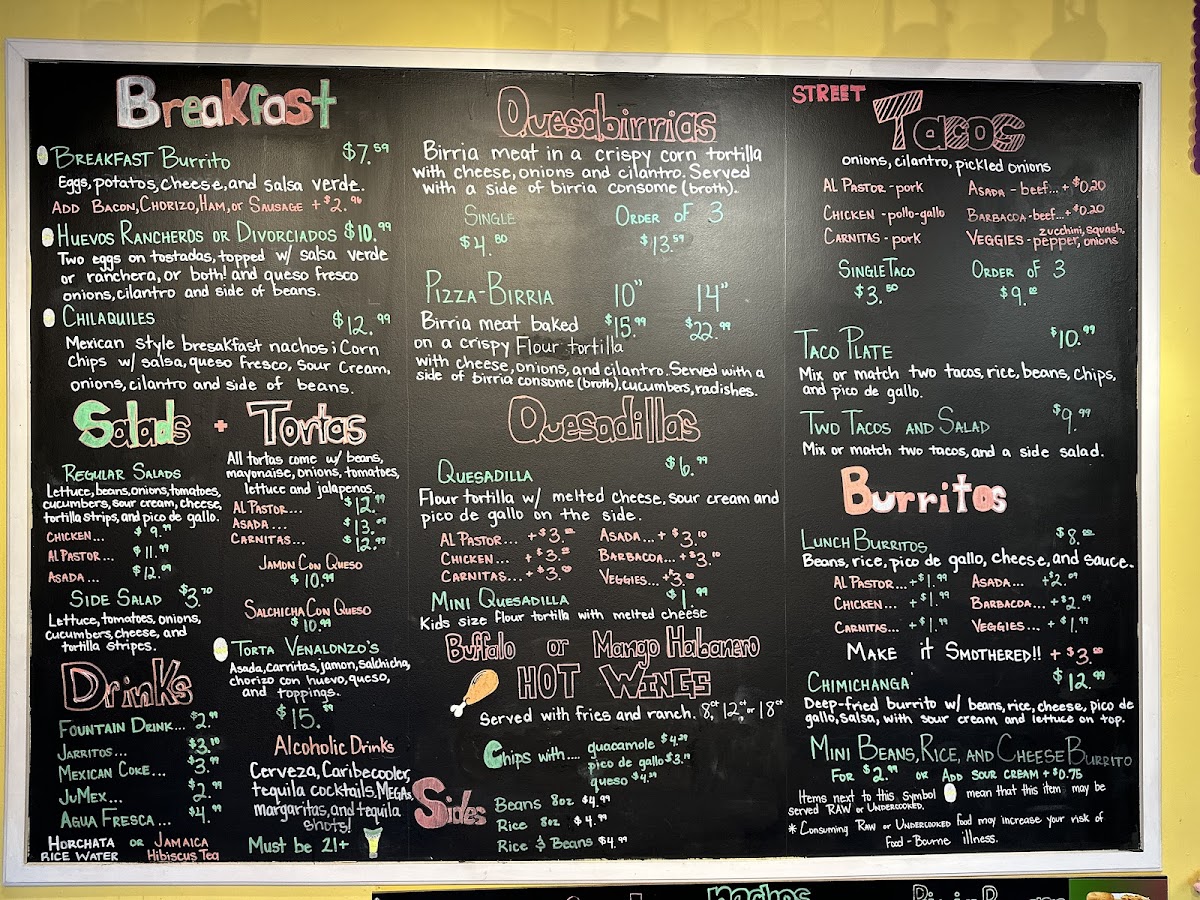 Breakfast
Breakfast Burrito $7.59
Eggs, potatos, cheese, and salsa verde.
Add Bacon, Chorizo, Ham, or Sausage + $2.96
Huevos Rancheros or Divorciados $10.99
Two eggs on tostadas, topped w/ salsa verde
or ranchera, or both! and queso fresco
onions, cilantro and side of beans.
Chilaquiles $12.99
Mexican style bresakfast nachos ; Corn
Chips w/ salsa, queso fresco, sour cream,
onions, cilantro and side of beans.
Salads + Tortas
Regular Salads
Lettuce, beans, onions, tomatoes,
cucumbers, sour cream, cheese,
tortilla strips, and pico de gallo.
Chicken... $9.99
Al Pastor... $11.99
Asada... $12.09
Side Salad $3.70
Lettuce, tomatoes, onions,
cucumbers, cheese, and
tortilla stripes.
All tortas come w/ beans,
mayonaise, onions, tomatoes,
lettuce and jalapenos.
Al Pastor... $12.99
Asada... $13.09
Carnitas... $12.99
Jamon Con Queso
$10.99
Salchicha Con Queso
$10.99
Torta Venalonzo's
Asada, carnitas, jamon, salchicha,
chorizo con huevo, queso,
and toppings.
$15.
Drinks
Fountain Drink... $2.99
Jarritos... $3.10
Mexican Coke... $3.99
JuMex... $2.99
Agua Fresca... $4.99
Horchata or Jamaica
Rice Water Hibiscus Tea
Alcoholic Drinks
Cerveza, Caribecooler,
tequila cocktails, MEGAs,
margaritas, and tequila
shots!
Must be 21+
Quesabirrias
Birria meat in a crispy corn tortilla
with cheese, onions and cilantro. Served
with a side of birria consome (broth).
Single Order of 3
$4.80 $13.59
Pizza-Birria 10" 14"
Birria meat baked $15.99 $22.99
on a crispy Flour tortilla
with cheese, onions, and cilantro. Served with a
side of birria consome (broth), cucumbers, radishes.
Quesadillas
Quesadilla $6.99
Flour tortilla w/ melted cheese, sour cream and
pico de gallo on the side.
Al Pastor... +$3.00 Asada... + $3.10
Chicken... +$3.00 Barbacoa... +$3.10
Carnitas... +$3.00 Veggies... +$3.00
Mini Quesadilla $1.99
Kids size flour tortilla with melted cheese
Buffalo or Mango Habanero
HOT WINGS
Served with fries and ranch. 8ct, 12ct, or 18ct
Chips with.... guacamole $4.29
pico de gallo $3.19
queso $4.29
Sides
Beans 8oz $4.99
Rice 8oz $4.99
Rice & Beans $4.99
STREET
Tacos
onions, cilantro, pickled onions
Al Pastor - pork Asada - beef... + $0.20
Chicken - pollo-gallo Barbacoa - beef... + $0.20
Carnitas - pork Veggies - zucchini, squash, pepper, onions
Single Taco Order of 3
$3.50 $9.00
Taco Plate $10.99
Mix or match two tacos, rice, beans, chips,
and pico de gallo.
Two Tacos and Salad $9.99
Mix or match two tacos, and a side salad.
Burritos
Lunch Burritos $8.00
Beans, rice, pico de gallo, cheese, and sauce.
Al Pastor... +$1.99 Asada... +$2.09
Chicken... +$1.99 Barbacoa... +$2.09
Carnitas... +$1.99 Veggies... +$1.99
Make it Smothered!! + $3.00
Chimichanga $12.99
Deep-fried burrito w/ beans, rice, cheese, pico de
gallo, salsa, with sour cream and lettuce on top.
Mini Beans, Rice, and Cheese Burrito
For $2.99 or Add sour cream + $0.75
Items next to this symbol mean that this item may be
served Raw or Undercooked.
* Consuming Raw or Undercooked food may increase your risk of
Food-Bourne illness.
nachos